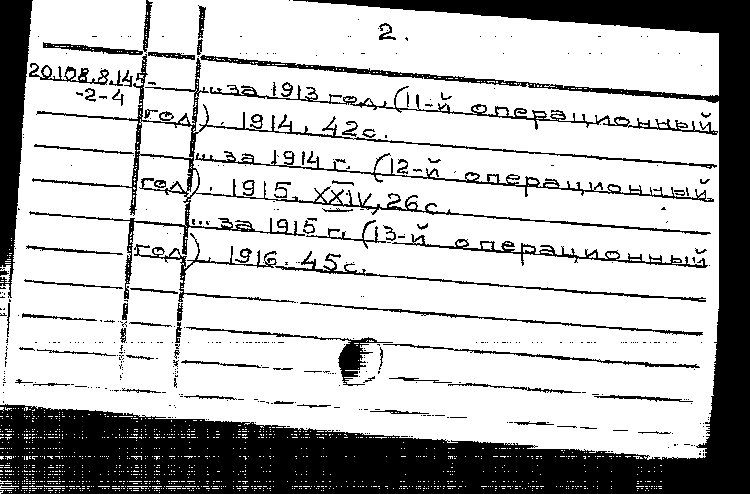 2.
20.108.8.145-
-2-4
...за 1913 год. (11-й операционный
год). 1914. 42с.
...за 1914 г. (12-й операционный
год). 1915. XXIV, 26с.
...за 1915 г. (13-й операционный
год). 1916. 45с.